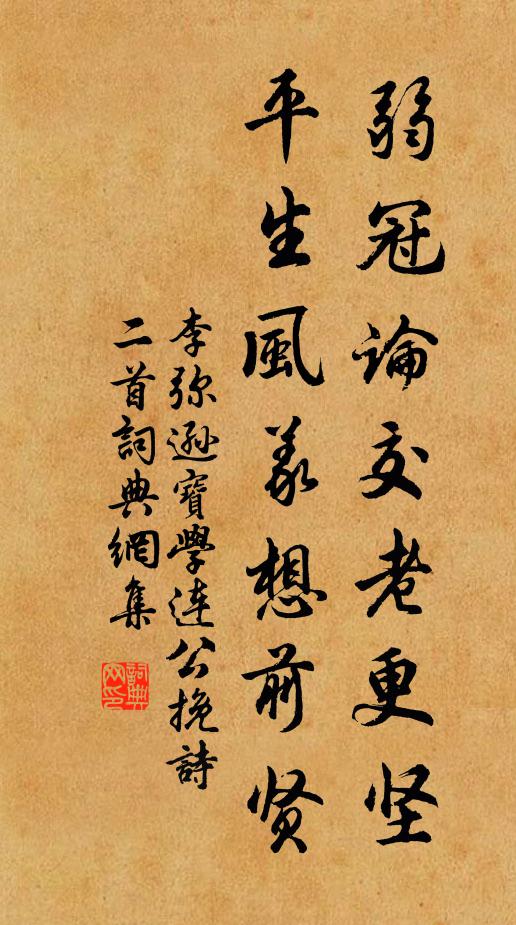 弱冠論交老更坚
平生風義想前贤
李弥遜寶學連公挽詩
二首詞典網集
詞典網印